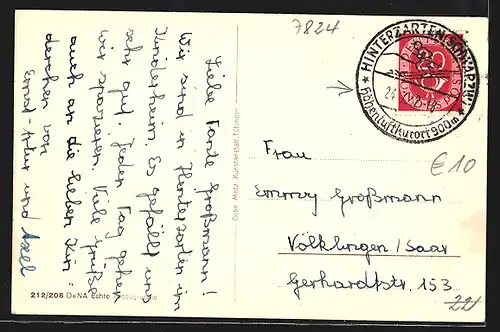 Liebe Tante Großmann!
Wir sind in Hinterzarten im
Kinderheim. Es gefällt uns
sehr gut. Jeden Tag gehen
wir spazieren. Viele Grüße
auch an die lieben Kin-
derchen von
Ernst-Artur und Axel
212/208 DeNA Echte
Gebr. Metz, Kunstanstalt, Tübingen
7824
HINTERZARTEN (SCHWARZW.)
Höhenluftkurort 900m
€10
Frau
Emmy Großmann
Völklingen/Saar
Gerhardtstr. 153
22